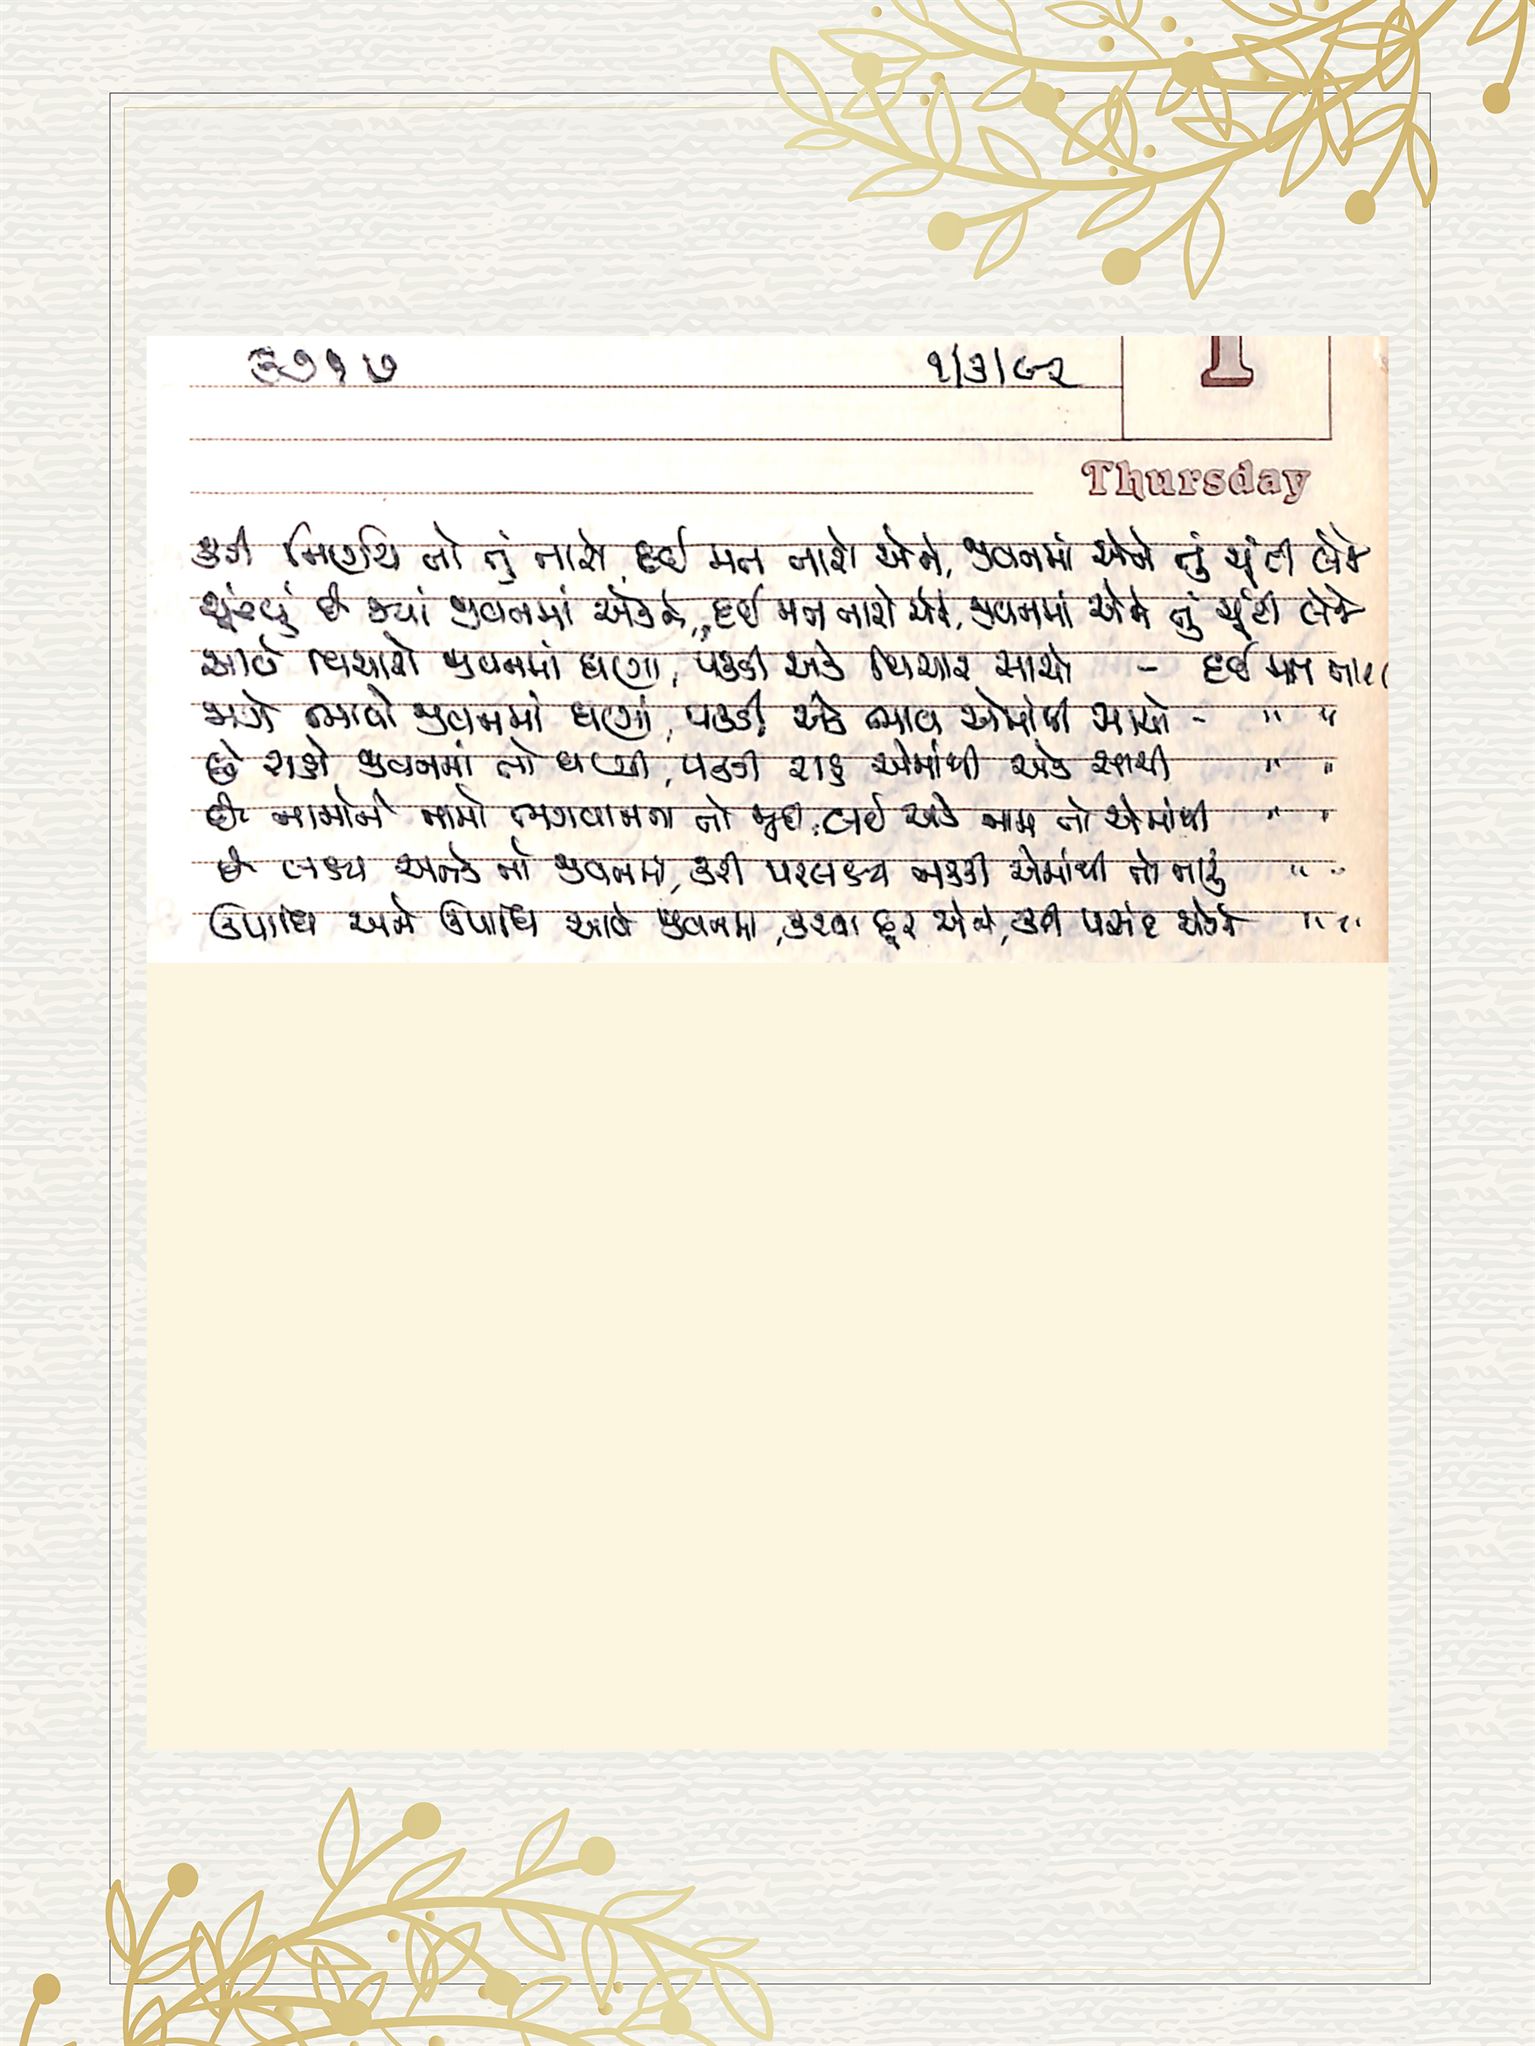 ૩૭૧૭ ૧/૩/૯૨
1
Thursday
કરી નિર્ણય તો તું નાચે, દઈ મન નાચે એને, જીવનમાં એને તું ચૂંટી લેજે
ચૂંટયું છે ક્યાં જીવનમાં એકને, દઈ મન નાચે એને, જીવનમાં એને તું ચૂંટી લેજે
આવે વિચારો જીવનમાં ઘણા, પકડી એક વિચાર સાચો - દઈ મન
જાગે ભાવો જીવનમાં ઘણાં, પકડી એક ભાવ એમાંથી સાચો - " "
છે રાહો જીવનમાં તો ઘણી, પકડી રાહ એમાંથી એક સાચી " "
છે નામોને નામો ભગવાનના તો, લઈ એક નામ તો એમાંથી " "
છે લક્ષ્ય અનેક તો જીવનમાં, કરી લક્ષ્ય નક્કી એમાંથી તો તારું " "
ઉપાધિ અને ઉપાધિ આવે જીવનમાં, કરવા દૂર એને, કરી પસંદ એકને " "